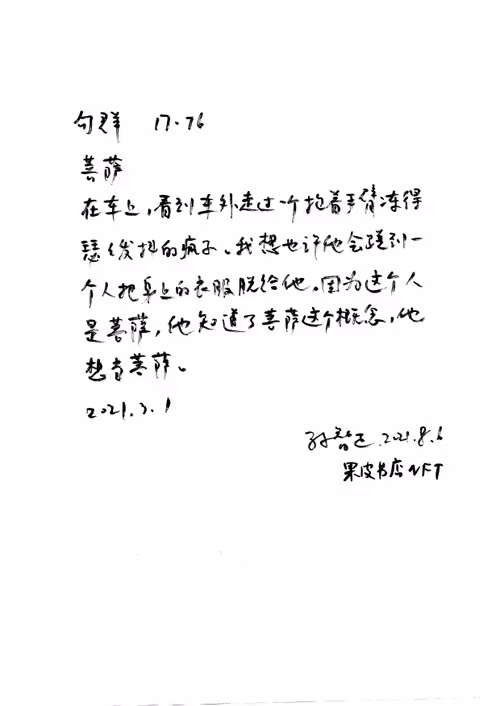 句群 17·76
菩萨
在车上,看到车外走过一个抱着手臂冻得
瑟瑟发抖的疯子。我想也许他会碰到一
个人把身上的衣服脱给他。因为这个人
是菩萨,他知道了菩萨这个概念,他
想当菩萨。
2021.3.1
孙智正 2021.8.6
果皮书店NFT